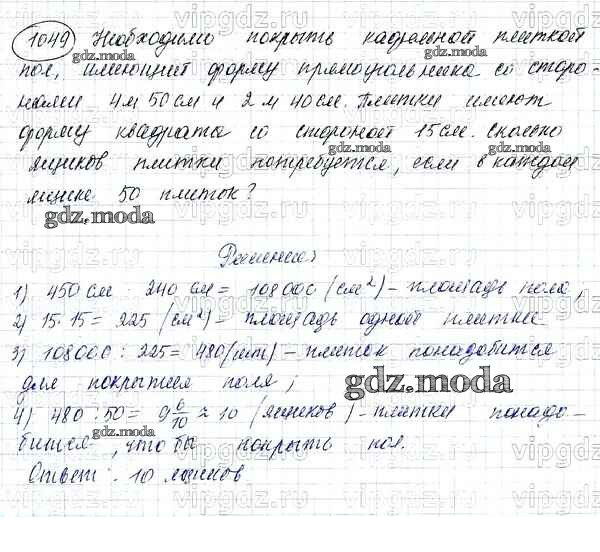 1049 Необходимо покрыть кафельной плиткой
пол, имеющий форму прямоугольника со сторо-
нами 4 м 50 см и 2 м 40 см. Плитки имеют
форму квадрата со стороной 15 см. Сколько
ящиков плитки потребуется, если в каждом
ящике 50 плиток?
gdz.moda
Решение
1) 450 см · 240 см = 108000 (см²) – площадь пола;
2) 15·15 = 225 (см²) – площадь одной плитки
3) 108000 : 225 = 480 (шт) – плиток понадобится
для покрытия поля;
gdz.moda
4) 480 : 50 = 9 6/10 ≈ 10 (ящиков) – плитки понадо-
бится, чтобы покрыть пол.
Ответ: 10 ящиков